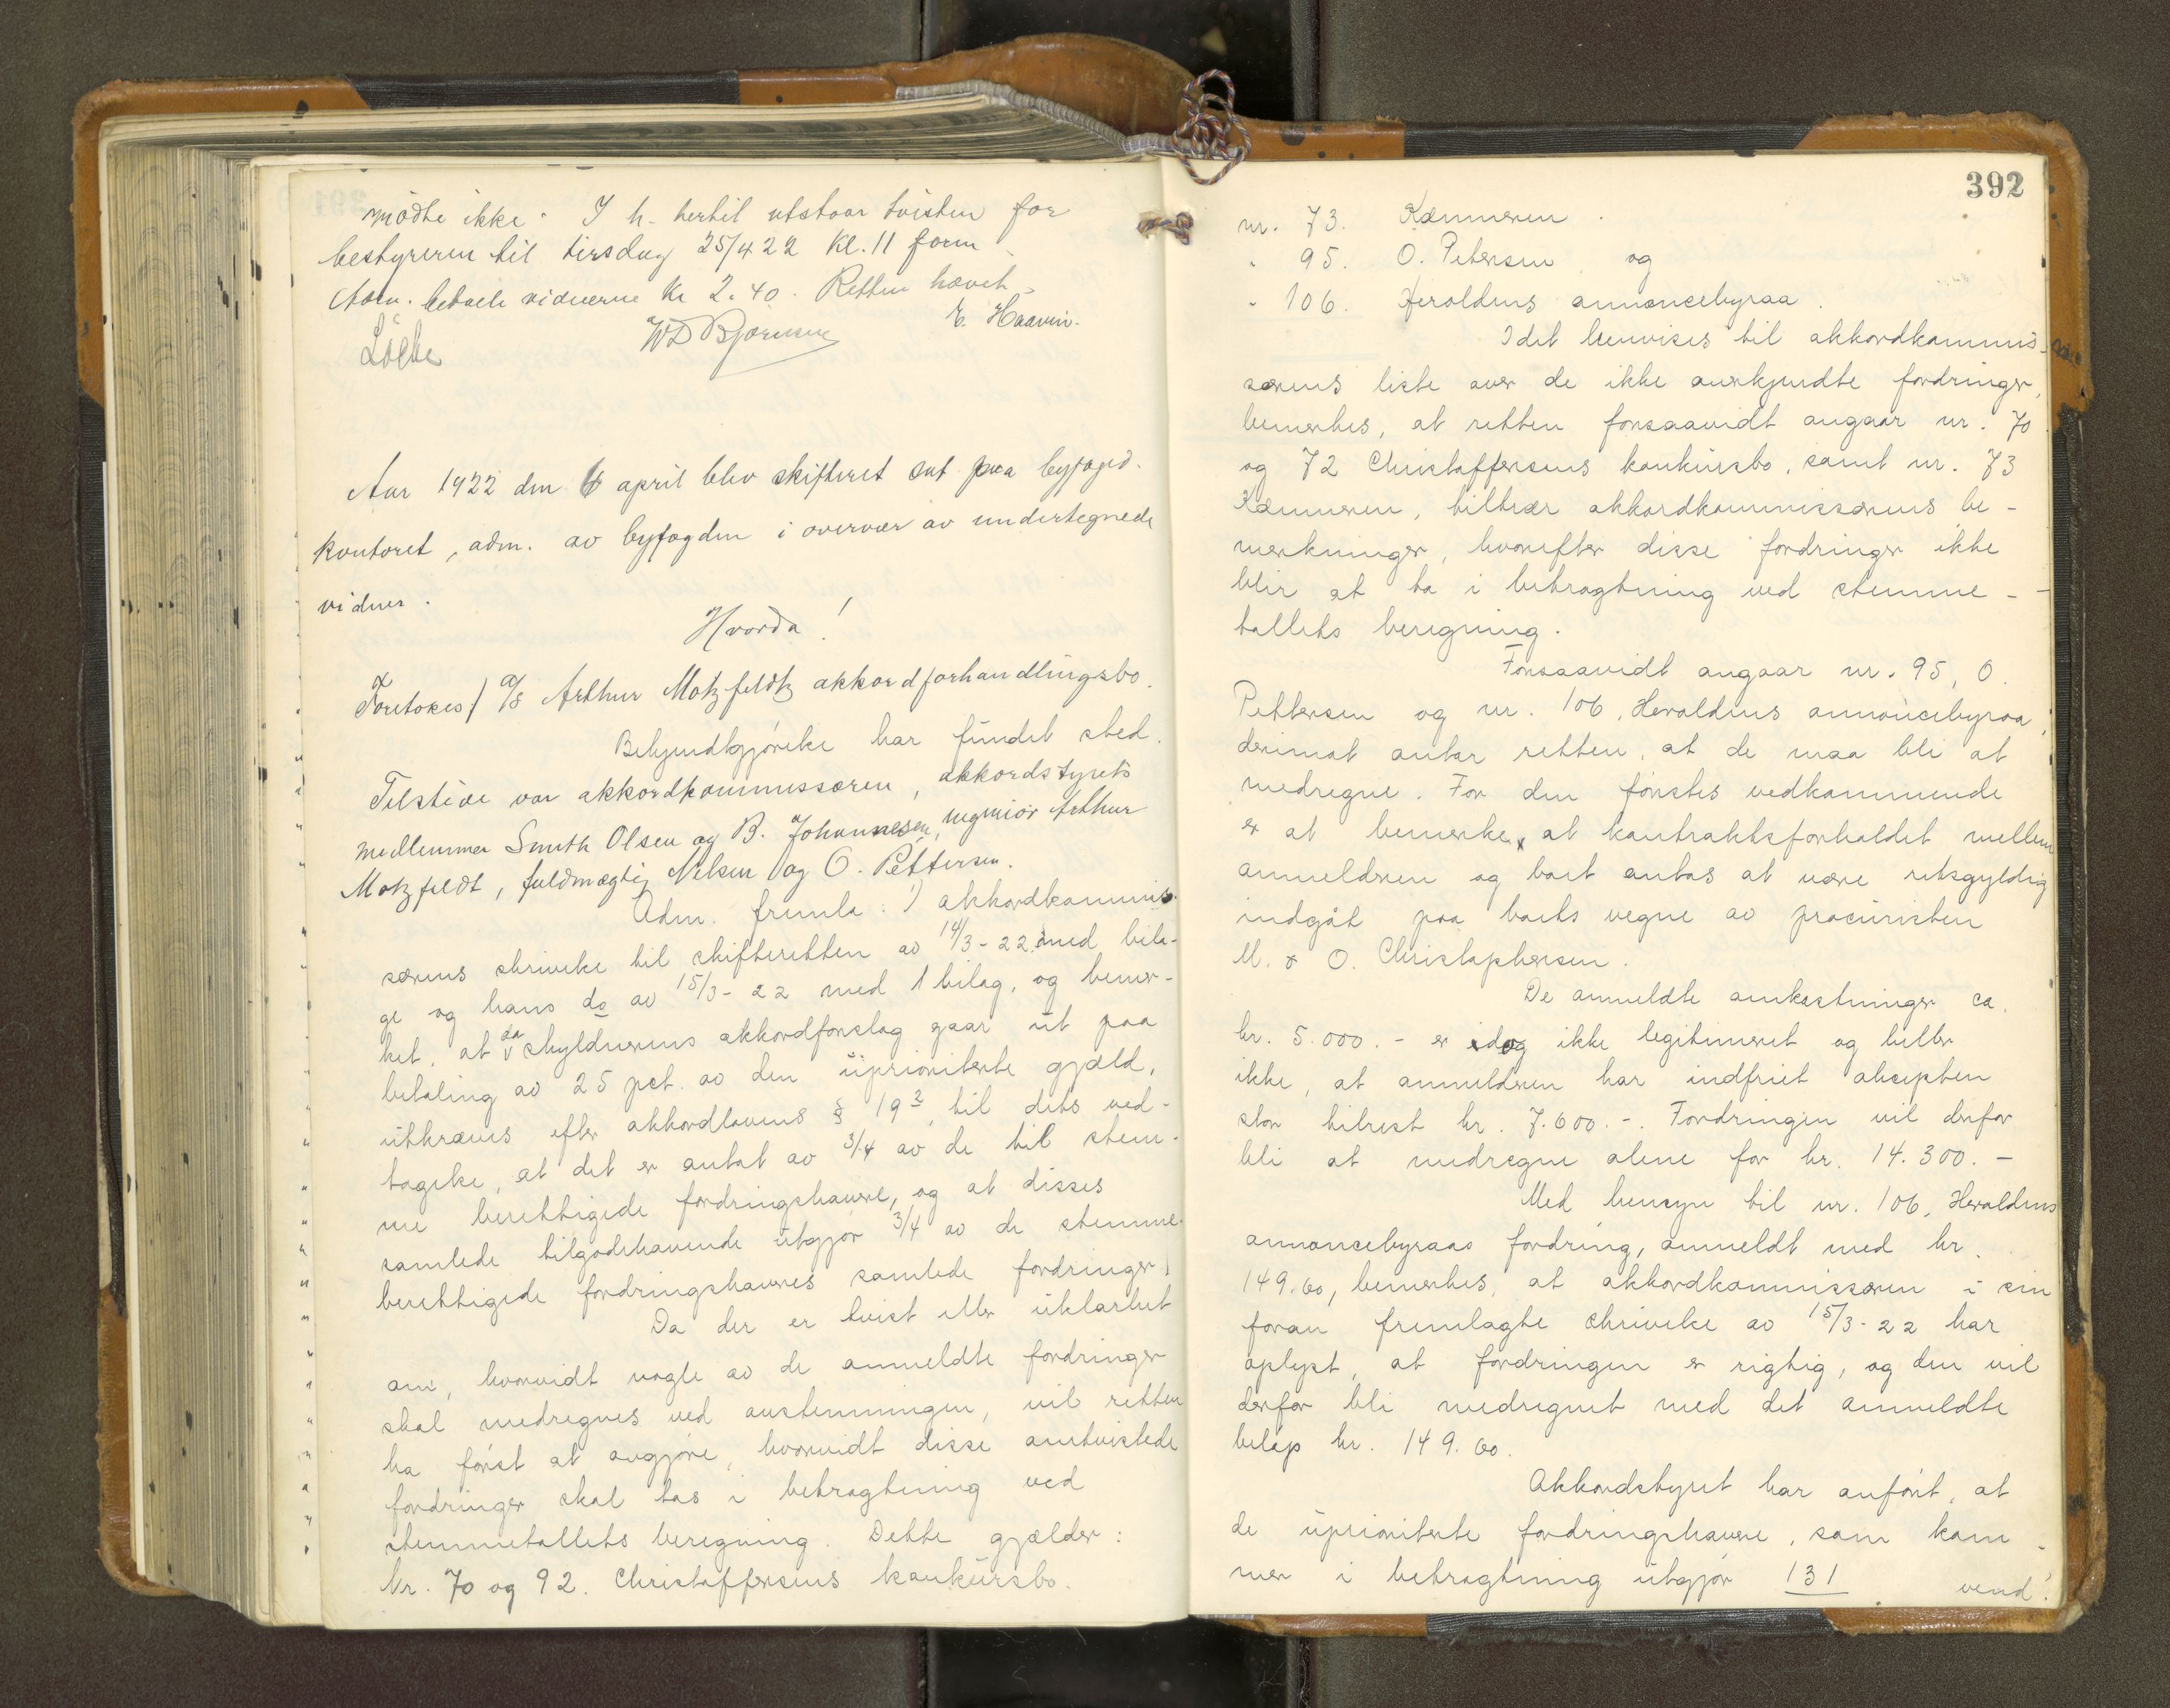 mødte ikke. I h. hertil utstaar tvisten for
bestyreren til tirsdag 25/4 22 kl. 11 form
Adm. betaelt vidnerne Kr 2.40. Retten hævet.
Løchen WD Bjørnsen E. Haavin.
Aar 1922 den 6 april blev skifteret sat paa byfogd.
kontoret, adm. av byfogden i overvær av undertegnede
vidner.
Hvorda!
Foretokes: A/S Arthur Motzfeldts akkordforhandlingsbo.
Bekjendtgjørelse har fundet sted.
Tilstede var akkordkommissæren, akkordstyrets
medlemmer Smith Olsen og B. Johannesen, ingeniør Arthur
Motzfeldt, fuldmægtig Nilsen og O. Pettersen.
Adm. fremla: 1) akkordkommis-
særens skrivelse til skifteretten av 14/3-22 med bila-
ge og hans do av 15/3-22 med 1 bilag, og bemer-
ket, at da skyldnerens akkordforslag gaar ut paa
betaling av 25 pct. av den uprioriterte gjæld,
utkræves efter akkordlovens § 19 2, til dets ved-
tagelse, at det er antat av 3/4 av de til stem-
me berettigede fordringshavere, og at disses
samlede tilgodehavende utgjør 3/4 av de stemme-
berettigede fordringshaveres samlede fordringer.
Da der er tvist eller uklarhet
om, hvorvidt nogle av de anmeldte fordringer
skal medregnes ved avstemningen, vil retten
ha først at avgjøre, hvorvidt disse omtvistede
fordringer skal tas i betragtning ved
stemmetallets beregning. Dette gjælder:
Nr. 70 og 92. Christoffersens konkursbo.
392
nr. 73. Kæmneren.
" 95. O. Petersen og
" 106. Heroldens annoncebyraa.
Idet henvises til akkordkommis-
særens liste over de ikke anerkjendte fordringer,
bemerkes, at retten forsaavidt angaar nr. 70
og 72 Christoffersens konkursbo, samt nr. 73
Kæmneren, tiltrær akkordkommissærens be-
merkninger, hvorefter disse fordringer ikke
blir at ta i betragtning ved stemme-
tallets beregning.
Forsaavidt angaar nr. 95, O.
Pettersen og nr. 106, Heroldens annoncebyraa,
derimot antar retten, at de maa bli at
medregne. For den førstes vedkommende
er at bemerke, at kontraktsforholdet mellem
anmelderen og boet antas at være retsgyldig
indgåt paa boets vegne av procuristen
M. & O. Christophersen.
De anmeldte omkostninger ca.
kr. 5.000.- er dog ikke legitimeret og heller
ikke, at anmelderen har indfriet aksepten
stor tilrest kr. 7.600.-. Fordringen vil derfor
bli at medregne alene for kr. 14.300.-
Med hensyn til nr. 106, Heroldens
annoncebyraas fordring, anmeldt med kr.
149.60, bemerkes, at akkordkommissæren i sin
foran fremlagte skrivelse av 15/3-22 har
oplyst, at fordringen er rigtig, og den vil
derfor bli medregnet med det anmeldte
beløp kr. 149.60.
Akkordstyret har anført, at
de uprioriterte fordringshavere, som kom-
mer i betragtning utgjør 131 vend!